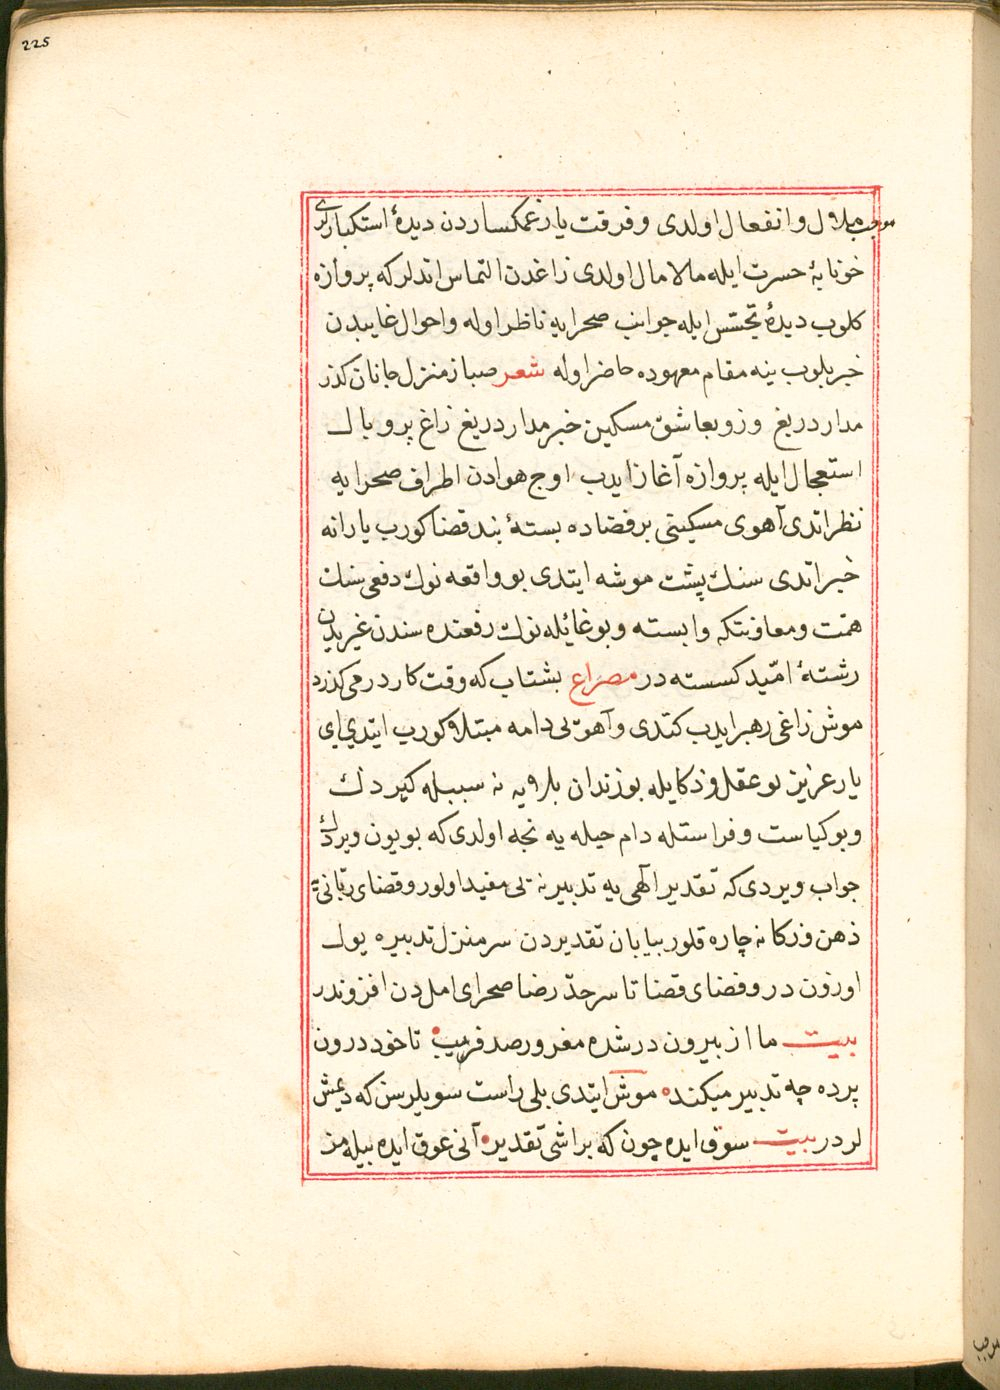 225
موجب ملال وانفعال اولدی وفرقت یار غمکساردن دیدهٔ استکبارلری
خونابهٔ حسرت ایله مالامال اولدی زاغدن التماس اتدلر که پروازه
کلوب دیدهٔ تجسّس ایله جوانب صحرایه ناظر اوله واحوال غایبدن
خبر بلوب ینه مقام معهوده حاضر اوله شعر صبا ز منزل جانان کذر
مدار دریغ وزو بعاشق مسکین خبر مدار دریغ زاغ پر وبال
استعجال ایله پروازه آغاز ایدب اوج هوادن اطراف صحرایه
نظر اتدی آهوی مسکینی بر فضاده بستهٔ بند قضا کورب یارانه
خبر اتدی سنك پشت موشه ایتدی بو واقعه نوك دفعی سنك
همّت ومعاونتکه وابسته وبو غائله نوك رفعنده سندن غیریدن
رشتهٔ امّید کسسته در مصراع بشتاب که وقت کار در می کذرد
موش زاغی رهبر ایدب کتدی وآهویی دامه مبتلا کورب ایتدی ای
یار عزیز بو عقل وذکایله بو زندان بلایه نه سببله کیردك
وبو کیاست وفراستله دام حیله یه نجه اولدی که بویون ویردك
جواب ویردی که تقدیر الهی یه تدبیر نه یی مفید اولور وقضای ربّانیّه
ذهن وزکا نه چاره قلور بیابان تقدیردن سرمنزل تدبیره یول
اوزون در وفضای قضا تا سرحدّ رضا صحرای املدن افزوندر
بیت ما از بیرون در شده مغرور صد فریب تا خود درون
پرده چه تدبیر میکند موش ایتدی بلی راست سویلرسن که دیمش
لردر بیت سوق ایده چون که براشی تقدیر آنی عوق ایده بیله مز